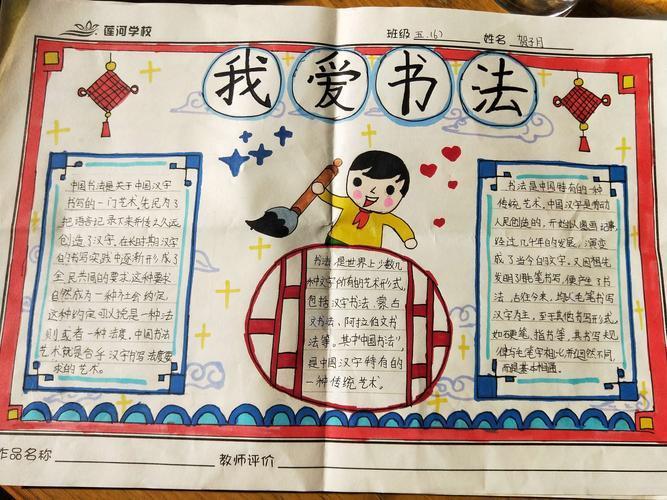 莲河学校
班级 五.(6) 姓名 贺子月
我爱书法
中国书法是关于中国汉字
书写的一门艺术,先民为了
把语言记录下来并传之久远,
创造了汉字,在长时期汉字
的书写实践中逐渐形成了
全民共同的要求,这种要求
自然成为一种社会约定,
这种约定可以说是一种法
则或者一种法度,中国书法
艺术就是合乎汉字书写法度要
求的艺术。
书法是世界上少数几
种文字所有的艺术形式,
包括汉字书法、蒙古
文书法、阿拉伯文书
法等。其中"中国书法",
是中国汉字特有的
一种传统艺术。
书法是中国特有的一种
传统艺术,中国汉字是劳动
人民创造的,开始以图画记事,
经过几千年的发展,演变
成了当今的文字,又因祖先
发明了用毛笔书写,便产生了书
法,古往今来,均以毛笔书写
汉字为主,至于其他书写形式,
如硬笔、指书等,其书写规
律与毛笔字相比并迥然不同,
而是基本相通。
作品名称
教师评价